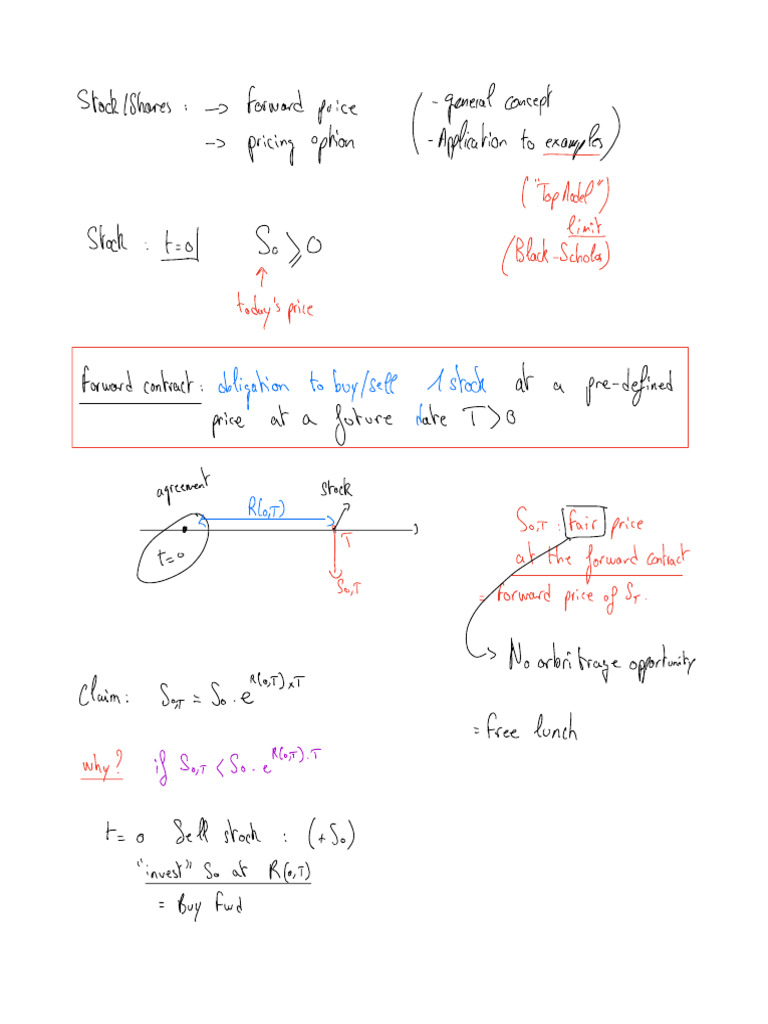 Stock/Shares : -> forward price
-> pricing option
(- general concept
- Application to examples)
("Top Model")
limit
(Black-Scholes)
Stock : t=0 S₀ ⩾ 0
↑
today's price
Forward contract : obligation to buy/sell 1 stock at a pre-defined
price at a future date T>0
agreement
stock
R(0,T)
t=0
T
S₀,T
S₀,T : fair price
at the forward contract
= forward price of S_T.
-> No arbitrage opportunity
= free lunch
Claim: S₀,T = S₀ . e^{R(0,T)×T}
why? if S₀,T < S₀ . e^{R(0,T).T}
t= 0 Sell stock : (+S₀)
"invest" S₀ at R(0,T)
= Buy fwd